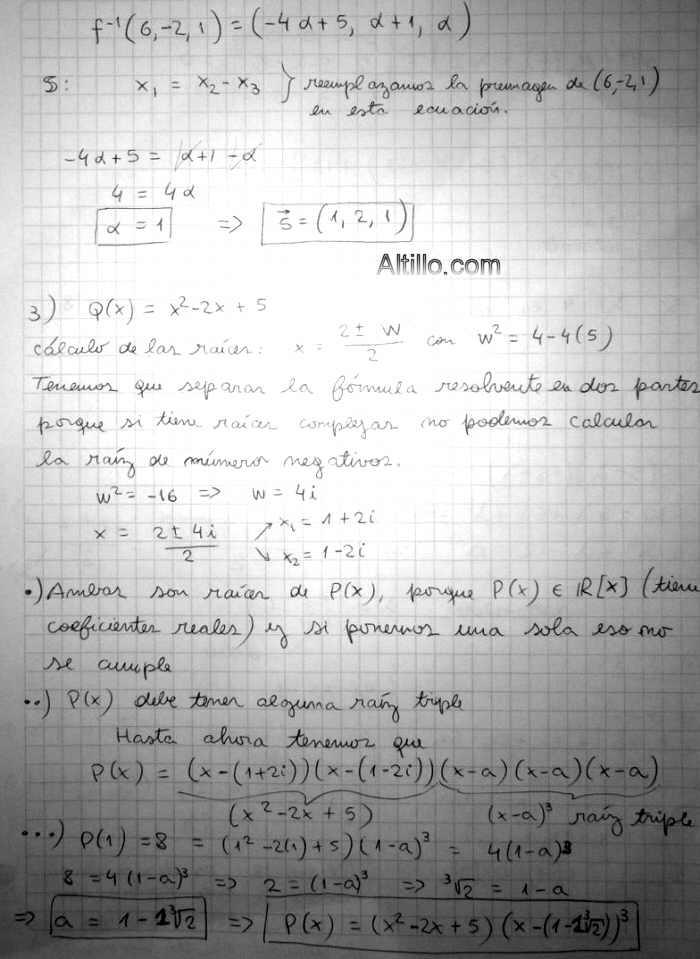 f⁻¹(6,-2,1) = (-4α+5, α+1, α)
S: x₁ = x₂ - x₃ } reemplazamos la preimagen de (6,-2,1)
en esta ecuación.
-4α+5 = α+1 - α
4 = 4α
α = 1 => s⃗ = (1, 2, 1)
Altillo.com
3) Q(x) = x²-2x+5
cálculo de las raíces: x = (2 ± w)/2 con w² = 4-4(5)
Tenemos que separar la fórmula resolvente en dos partes
porque si tiene raíces complejas no podemos calcular
la raíz de números negativos.
w² = -16 => w = 4i
x = (2 ± 4i)/2 ↗ x₁ = 1+2i
↘ x₂ = 1-2i
•) Ambas son raíces de P(x), porque P(x) ∈ ℝ[x] (tiene
coeficientes reales) y si ponemos una sola eso no
se cumple
••) P(x) debe tener alguna raíz triple
Hasta ahora tenemos que
P(x) = (x-(1+2i))(x-(1-2i))(x-a)(x-a)(x-a)
(x²-2x+5) (x-a)³ raíz triple
•••) P(1) = 8 = (1²-2(1)+5)(1-a)³ = 4(1-a)3
8 = 4(1-a)³ => 2 = (1-a)³ => ³√2 = 1-a
=> a = 1-1³√2 => P(x) = (x²-2x+5)(x-(1-1³√2))³